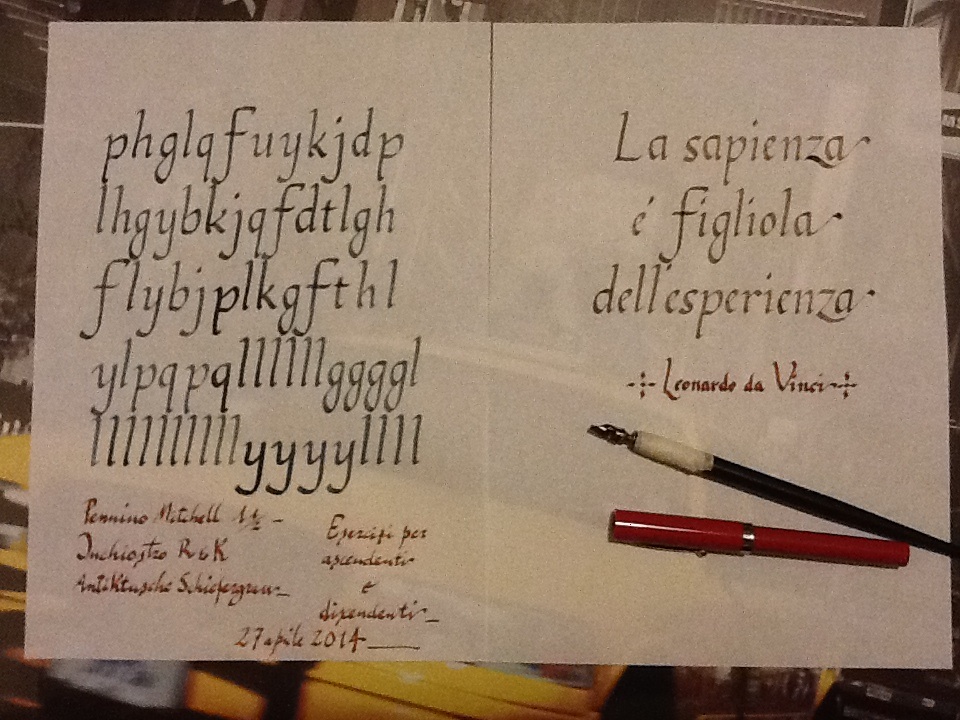 phglqfuykjdp
lhgybkjqfdtlgh
flybjplkgfthl
ylpqpqllllllggggl
llllllllllyyyyllll
Pennino Mitchell 1½ –
Inchiostro R&K
Antiktusche Schiefergrau
Esercizi per
ascendenti
e
dixendenti
27 apile 2014
La sapienza
é figliola
dell'esperienza
Leonardo da Vinci